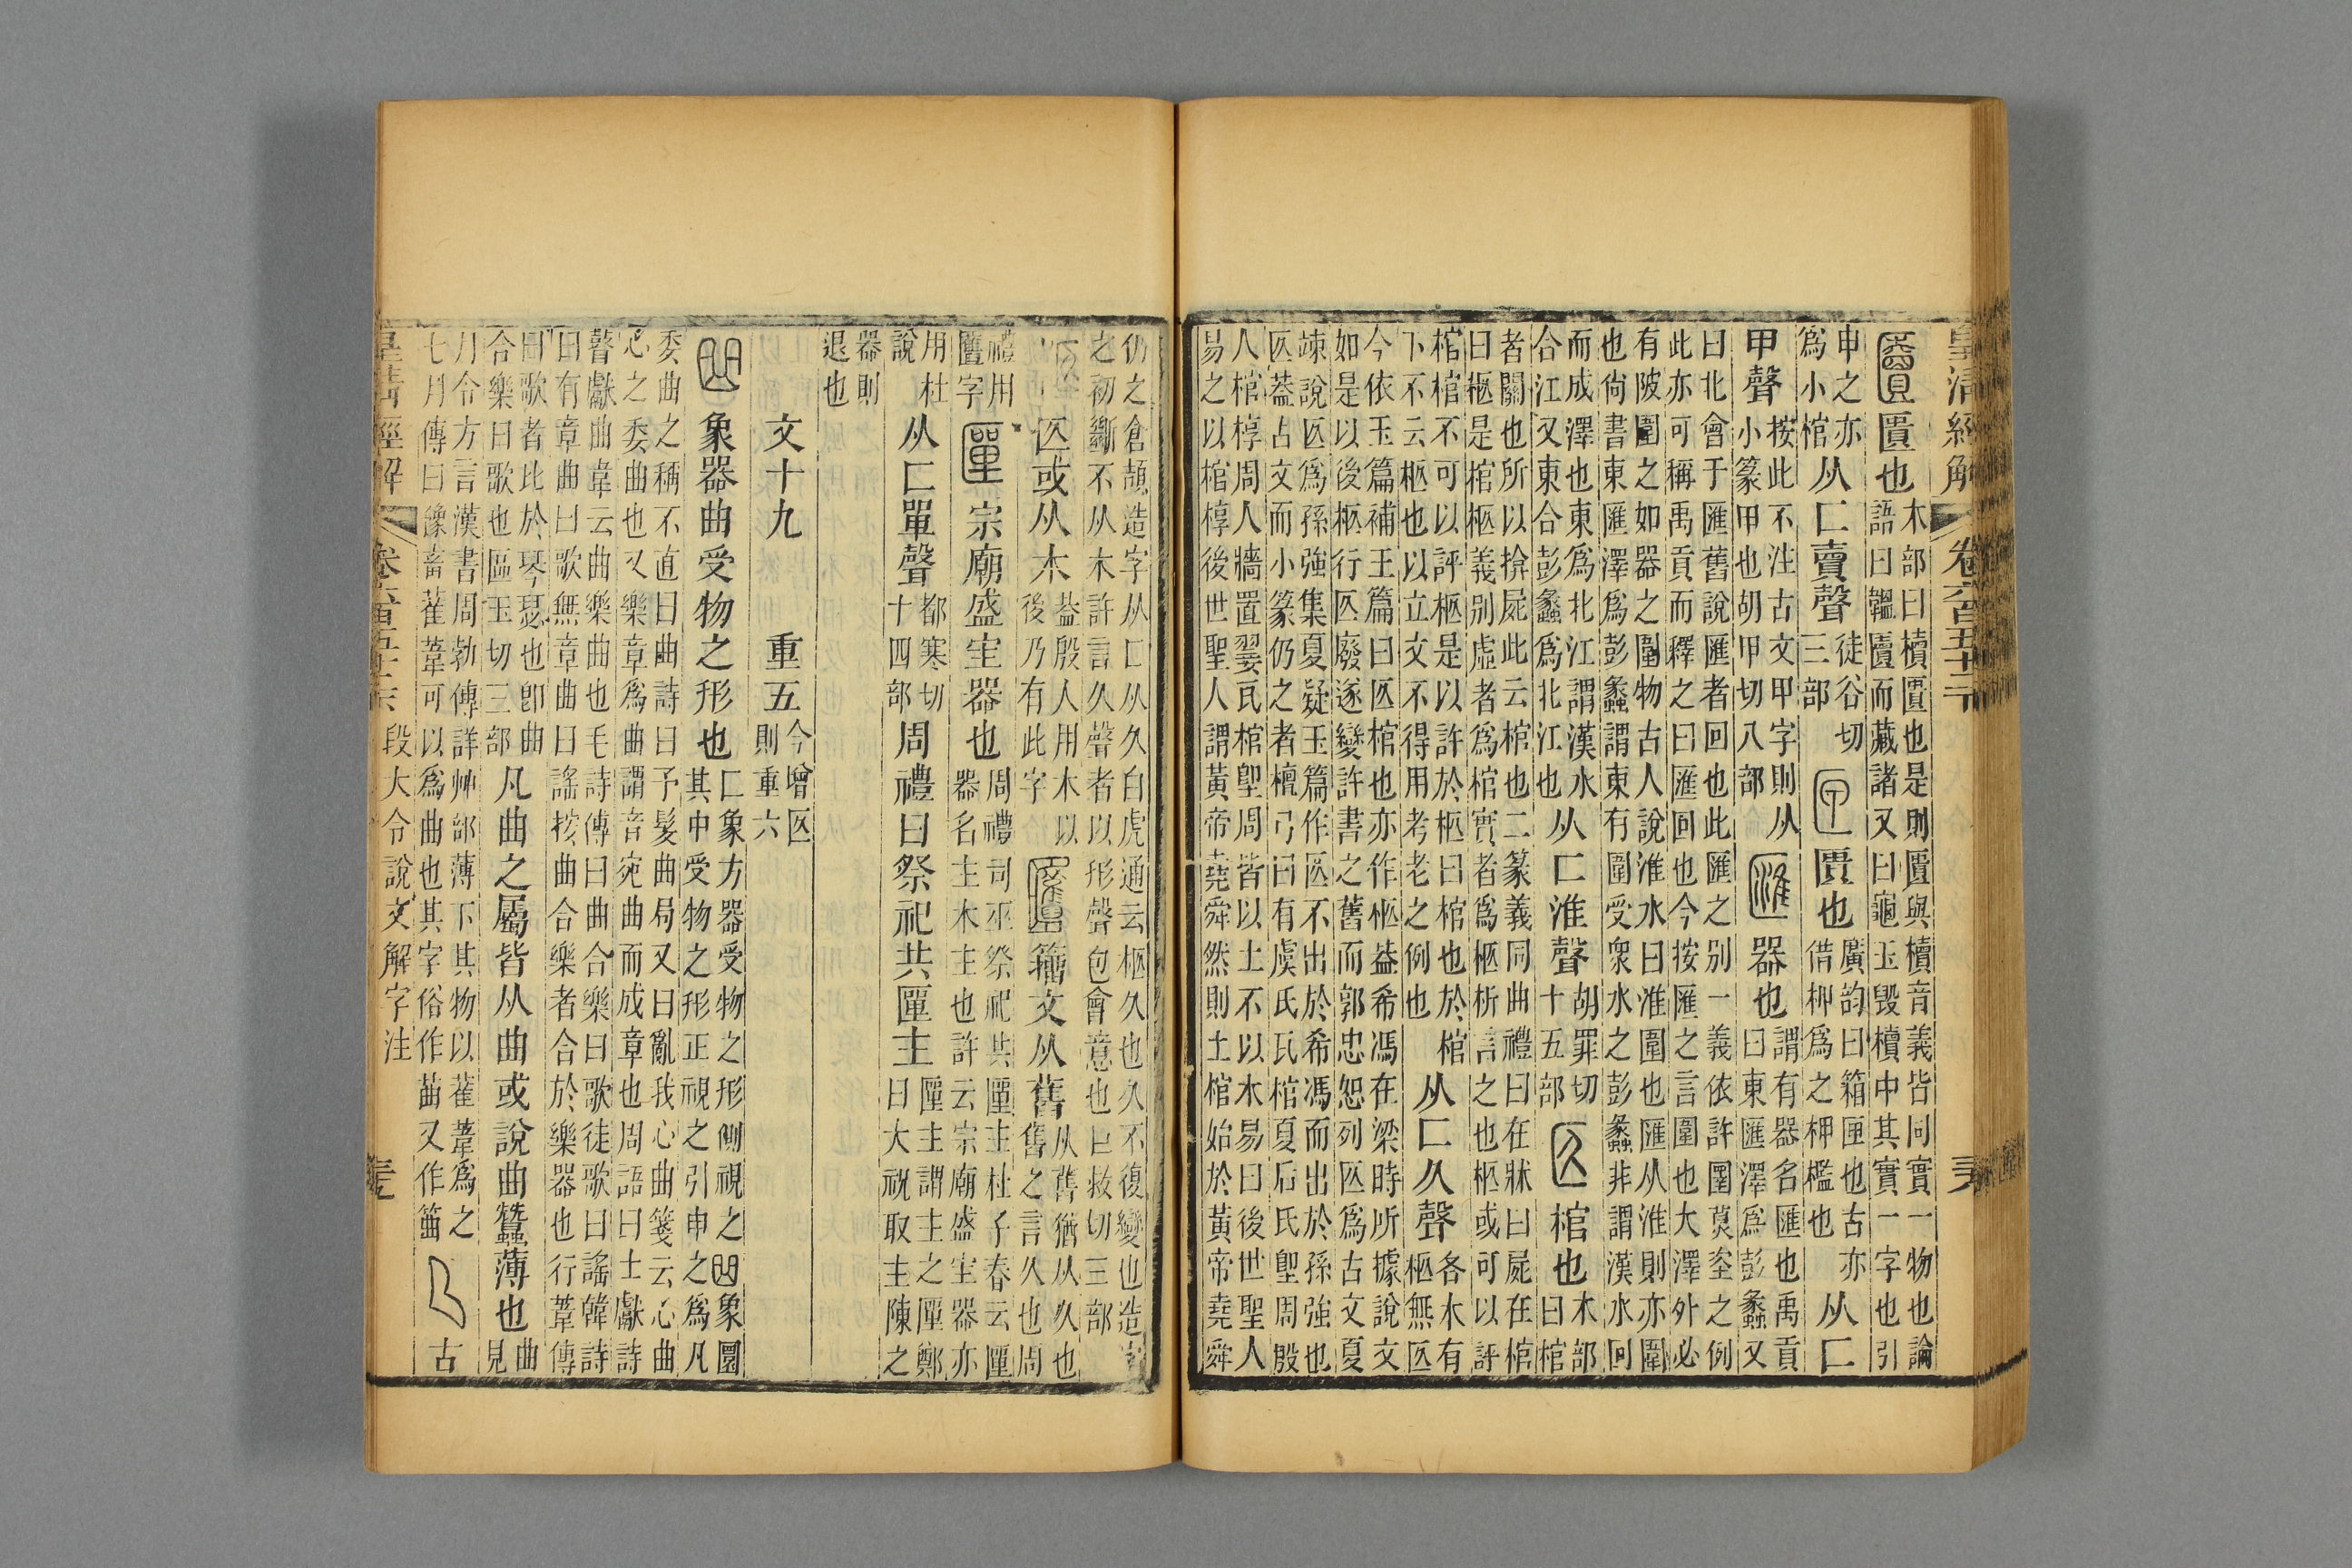 皇清經解 卷六百五十二下
匵也木部曰櫝匵也是則匵與櫝音義皆同實一物也論
語曰韞匵而藏諸又曰龜玉毀櫝中其實一字也引
申之亦
爲小棺从匚賣聲徒谷切
三部 匣 匱也廣韵曰箱匣也古亦
借柙爲之柙檻也从匚
甲聲按此不注古文甲字則从
小篆甲也胡甲切八部 匯 器也謂有器名匯也禹貢
曰東匯澤爲彭蠡又
曰北會于匯舊說匯者回也此匯之別一義依許圛莫坴之例
此亦可稱禹貢而釋之曰匯回也今按匯之言圍也大澤外必
有陂圍之如器之圍物古人說淮水曰淮圍也匯从淮則亦圍
也尙書東匯澤爲彭蠡謂東有圍受衆水之彭蠡非謂漢水回
而成澤也東爲北江謂漢水
合江又東合彭蠡爲北江也从匚淮聲胡罪切
十五部 匛 棺也木部
曰棺
者關也所以揜屍此云棺也二篆義同曲禮曰在牀曰屍在棺
曰柩是棺柩義別虛者爲棺實者爲柩析言之也柩或可以評
棺棺不可以評柩是以許於柩曰棺也於棺
下不云柩也以立文不得用考老之例也从匚久聲各木有
柩無匛
今依玉篇補玉篇曰匛棺也亦作柩葢希馮在梁時所據說文
如是以後柩行匛廢遂變許書之舊而郭忠恕列匛爲古文夏
竦說匛爲孫強集夏疑玉篇作匛不出於希馮而出於孫強也
匛葢占文而小篆仍之者檀弓曰有虞氏瓦棺夏后氏堲周殷
人棺椁周人牆置翣瓦棺堲周皆以土不以木易曰後世聖人
易之以棺椁後世聖人謂黃帝堯舜然則土棺始於黃帝堯舜
仍之倉頡造字从匚从久白虎通云柩久也久不復變也造字
之初斷不从木許言久聲者以形聲包會意也巨救切三部
匛或从木葢殷人用木以
後乃有此字 籒文从舊从舊猶从久也
舊之言久也周
禮用
匶字 匰 宗廟盛主器也周禮司巫祭祀共匰主杜子春云匰
器名主木主也許云宗廟盛主器亦
用杜
說从匚單聲都寒切
十四部周禮曰祭祀共匰主匰主謂主之匰鄭
曰大祝取主陳之
器則
退也
文十九 重五今增匛
則重六
象器曲受物之形也匚象方器受物之形側視之𠙽象圜
其中受物之形正視之引申之爲凡
委曲之稱不直曰曲詩曰予髮曲局又曰亂我心曲箋云心曲
心之委曲也又樂章爲曲謂音宛曲而成章也周語曰士獻詩
瞽獻曲韋云曲樂曲也毛詩傳曰曲合樂曰歌徒歌曰謠韓詩
曰有章曲曰歌無章曲曰謠按曲合樂者合於樂器也行葦傳
曰歌者比於琴瑟也卽曲
合樂曰歌也區玉切三部凡曲之屬皆从曲或說曲蠶薄也曲
見
月令方言漢書周勃傳詳艸部薄下其物以萑葦爲之
七月傳曰豫畜萑葦可以爲曲也其字俗作䒼又作筁 古
皇清經解 卷六百五十二下 段大令說文解字注